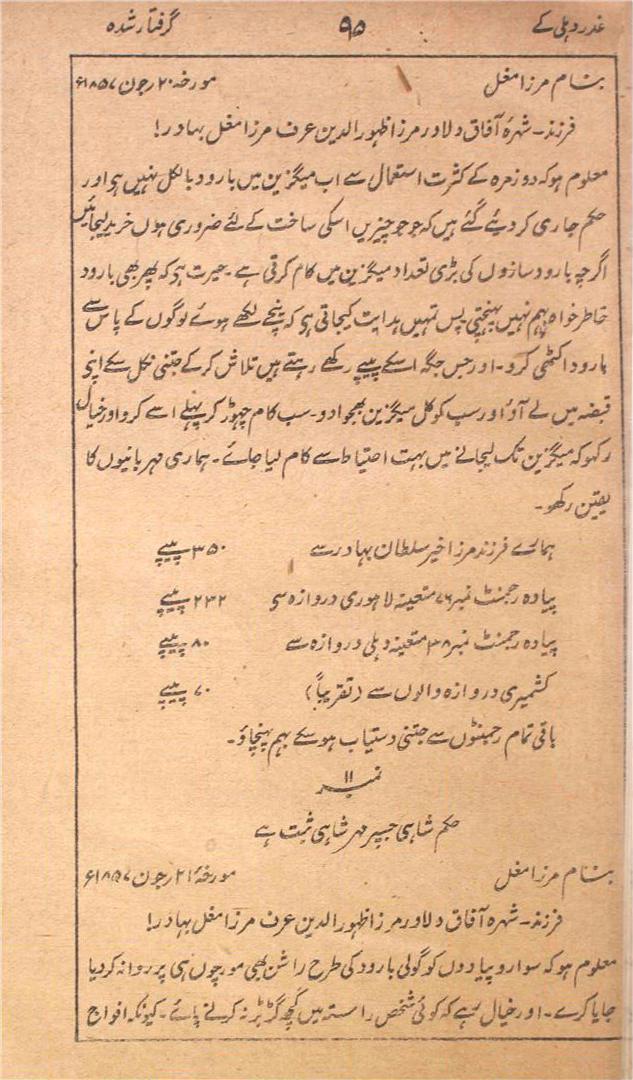 غدر دہلی کے ۹۵ گرفتار شدہ
بنام مرزا مغل مورخہ ۲۰ رجون ۱۸۵۷ء
فرزند۔ شہرہ آفاق دلاور مرزا ظہور الدین عرف مرزا مغل بہادر!
معلوم ہو کہ روزمرہ کے کثرت استعمال سے اب میگزین میں بارود بالکل نہیں ہی اور
حکم جاری کر دیئے گئے ہیں کہ جو جو چیزیں اسکی ساخت کے لئے ضروری ہوں خرید لیجائیں
اگرچہ بارود سازوں کی بڑی تعداد میگزین میں کام کرتی ہے۔ حیرت ہو کہ پھر بھی بارود
خاطر خواہ بہم نہیں پہنچتی پس تمہیں ہدایت کیجاتی ہی کہ نیچے لکھے ہوئے لوگوں کے پاس سے
بارود اکٹھی کرو۔ اور جس جگہ اسکے پیپے رکھے رہتے ہیں تلاش کر کے جتنی نکل سکے اپنی
قبضہ میں لے آؤ اور سب کو کل میگزین بھجوا دو۔ سب کام چھوڑ کر پہلے اسے کرو اور خیال
رکھو کہ میگزین تک لیجانے میں بہت احتیاط سے کام لیا جائے۔ ہماری مہربانیوں کا
یقین رکھو۔
ہمارے فرزند مرزا خیر سلطان بہادر سے ۳۵۰ پیپے
پیادہ رجمنٹ نمبر ۷۶ متعینہ لاہوری دروازہ سی ۲۳۲ پیپے
پیادہ رجمنٹ نمبر ۳۸ متعینہ دہلی دروازہ سے ۸۰ پیپے
کشمیری دروازہ والوں سے (تقریباً) ۷۰ پیپے
باقی تمام رجمنٹوں سے جتنی دستیاب ہو سکے بہم پہنچاؤ۔
نمبر ۱۱
حکم شاہی جسپر مہر شاہی ثبت ہے
بنام مرزا مغل مورخہ ۲۱ رجون ۱۸۵۷ء
فرزند۔ شہرہ آفاق دلاور مرزا ظہور الدین عرف مرزا مغل بہادر!
معلوم ہو کہ سوار و پیادوں کو گولی بارود کی طرح راشن بھی مورچوں ہی پر روانہ کر دیا
جایا کرے۔ اور خیال رہے کہ کوئی شخص راستہ میں کچھ گڑبڑ نہ کرنے پائے۔ کیونکہ افواج